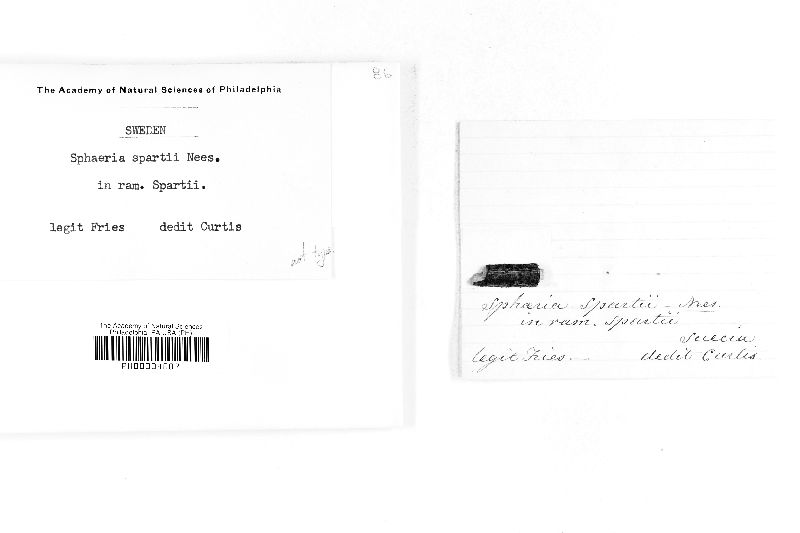 86
The Academy of Natural Sciences of Philadelphia
SWEDEN
Sphaeria spartii Nees.
in ram. Spartii.
legit Fries dedit Curtis
not type
The Academy of Natural Sciences
Philadelphia, PA USA (PH)
Sphæria Spartii - Nees.
in ram. Spartii
Suecia
legit Fries. dedit Curtis